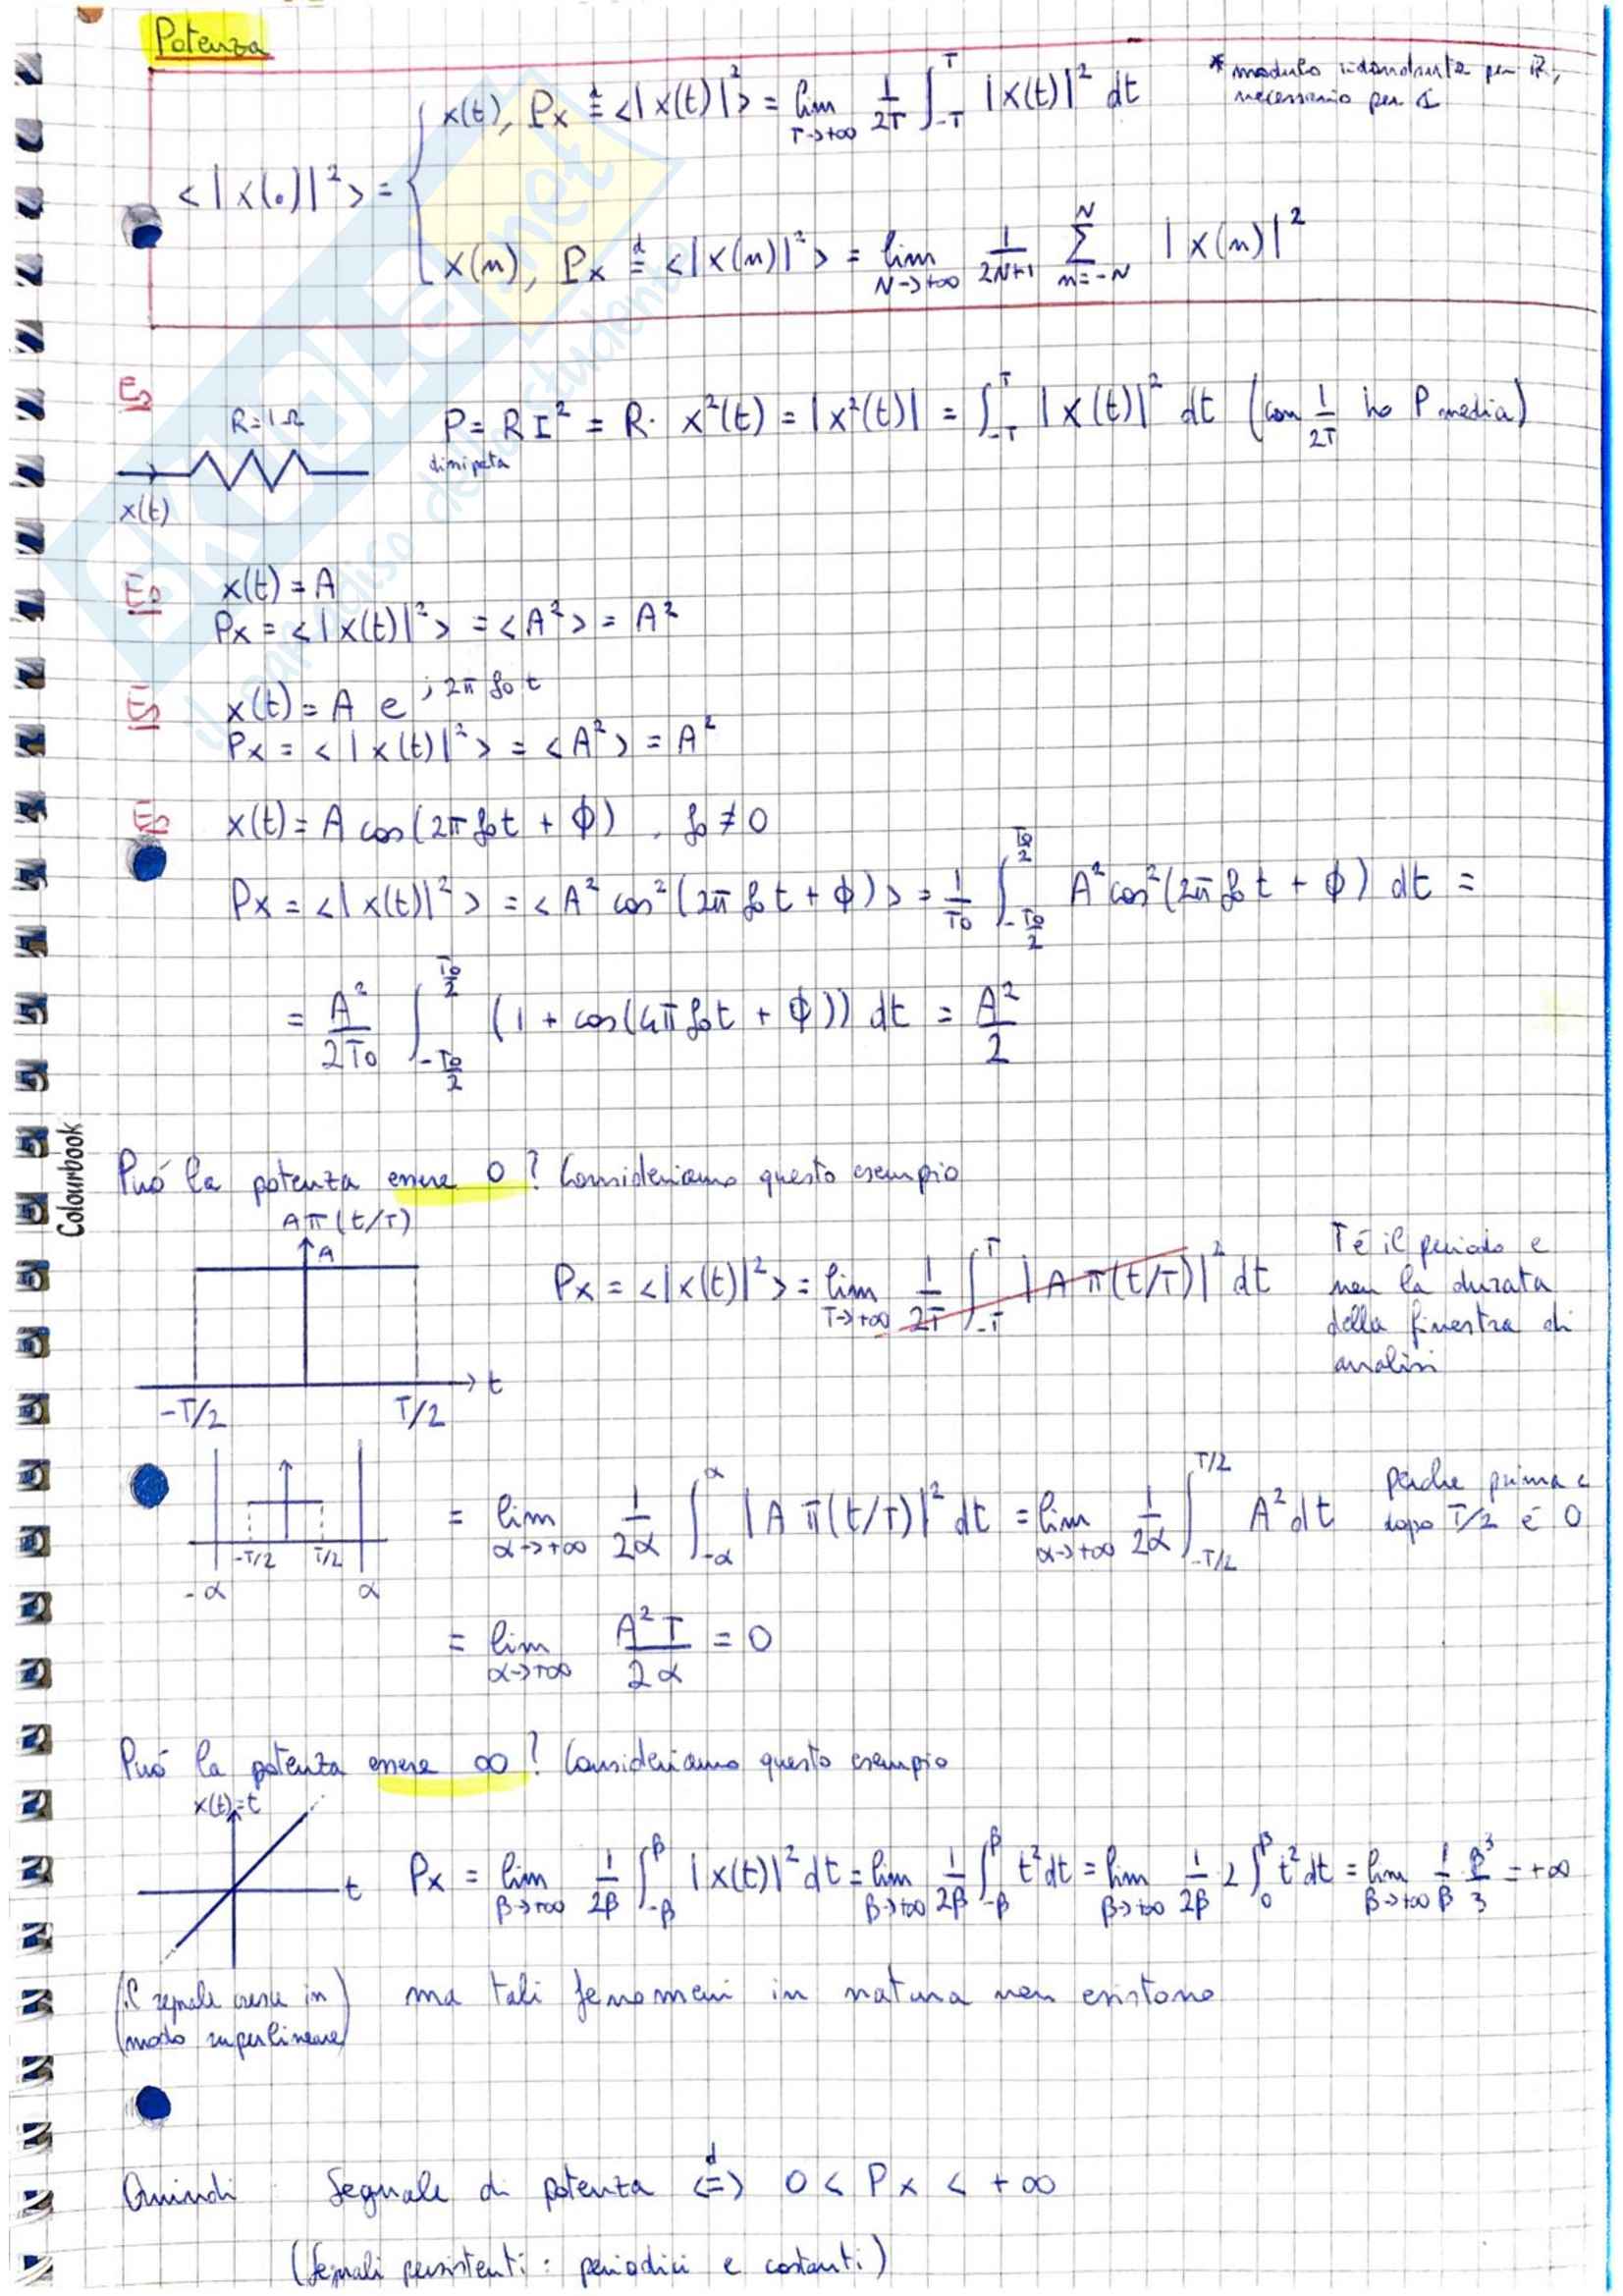 Potenza
* modulo ridondante per ℝ,
necessario per ℂ
x(t), Px ≜ <|x(t)|²> = lim T→+∞ 1/2T ∫_-T^T |x(t)|² dt
<|x(.)|²> =
x(n), Px ≜ <|x(n)|²> = lim N→+∞ 1/2N+1 Σ_n=-N^N |x(n)|²
ES
R=1Ω
P = R I² = R · x²(t) = |x²(t)| = ∫_-T^T |x(t)|² dt (con 1/2T ho P media)
dissipata
x(t)
ES x(t) = A
Px = <|x(t)|²> = <A²> = A²
ES x(t) = A e^j2π f0 t
Px = <|x(t)|²> = <A²> = A²
ES x(t) = A cos(2π f0 t + ϕ), f0 ≠ 0
Px = <|x(t)|²> = <A² cos²(2π f0 t + ϕ)> = 1/T0 ∫_-T0/2^T0/2 A² cos²(2π f0 t + ϕ) dt =
= A²/2T0 ∫_-T0/2^T0/2 (1 + cos(4π f0 t + ϕ)) dt = A²/2
Colourbook
Puó la potenza essere 0? Consideriamo questo esempio
Aπ(t/T)
A
t
-T/2 T/2
Px = <|x(t)|²> = lim T→+∞ 1/2T ∫_-T^T |A π(t/T)|² dt
T é il periodo e
non la durata
della finestra di
analisi
-T/2 T/2
-α α
= lim α→+∞ 1/2α ∫_-α^α |A π(t/T)|² dt = lim α→+∞ 1/2α ∫_-T/2^T/2 A² dt
perché prima e
dopo T/2 é 0
= lim α→+∞ A² T/2α = 0
Puó la potenza essere ∞? Consideriamo questo esempio
x(t)=t
t
Px = lim β→+∞ 1/2β ∫_-β^β |x(t)|² dt = lim β→+∞ 1/2β ∫_-β^β t² dt = lim β→+∞ 1/2β 2 ∫_0^β t² dt = lim β→+∞ 1/β β³/3 = +∞
(il segnale cresce in
modo superlineare)
ma tali fenomeni in natura non esistono
Quindi : Segnale di potenza <=>^d 0 < Px < +∞
(Segnali persistenti: periodici e costanti)
SKUOLA.net
il paradiso dello studente